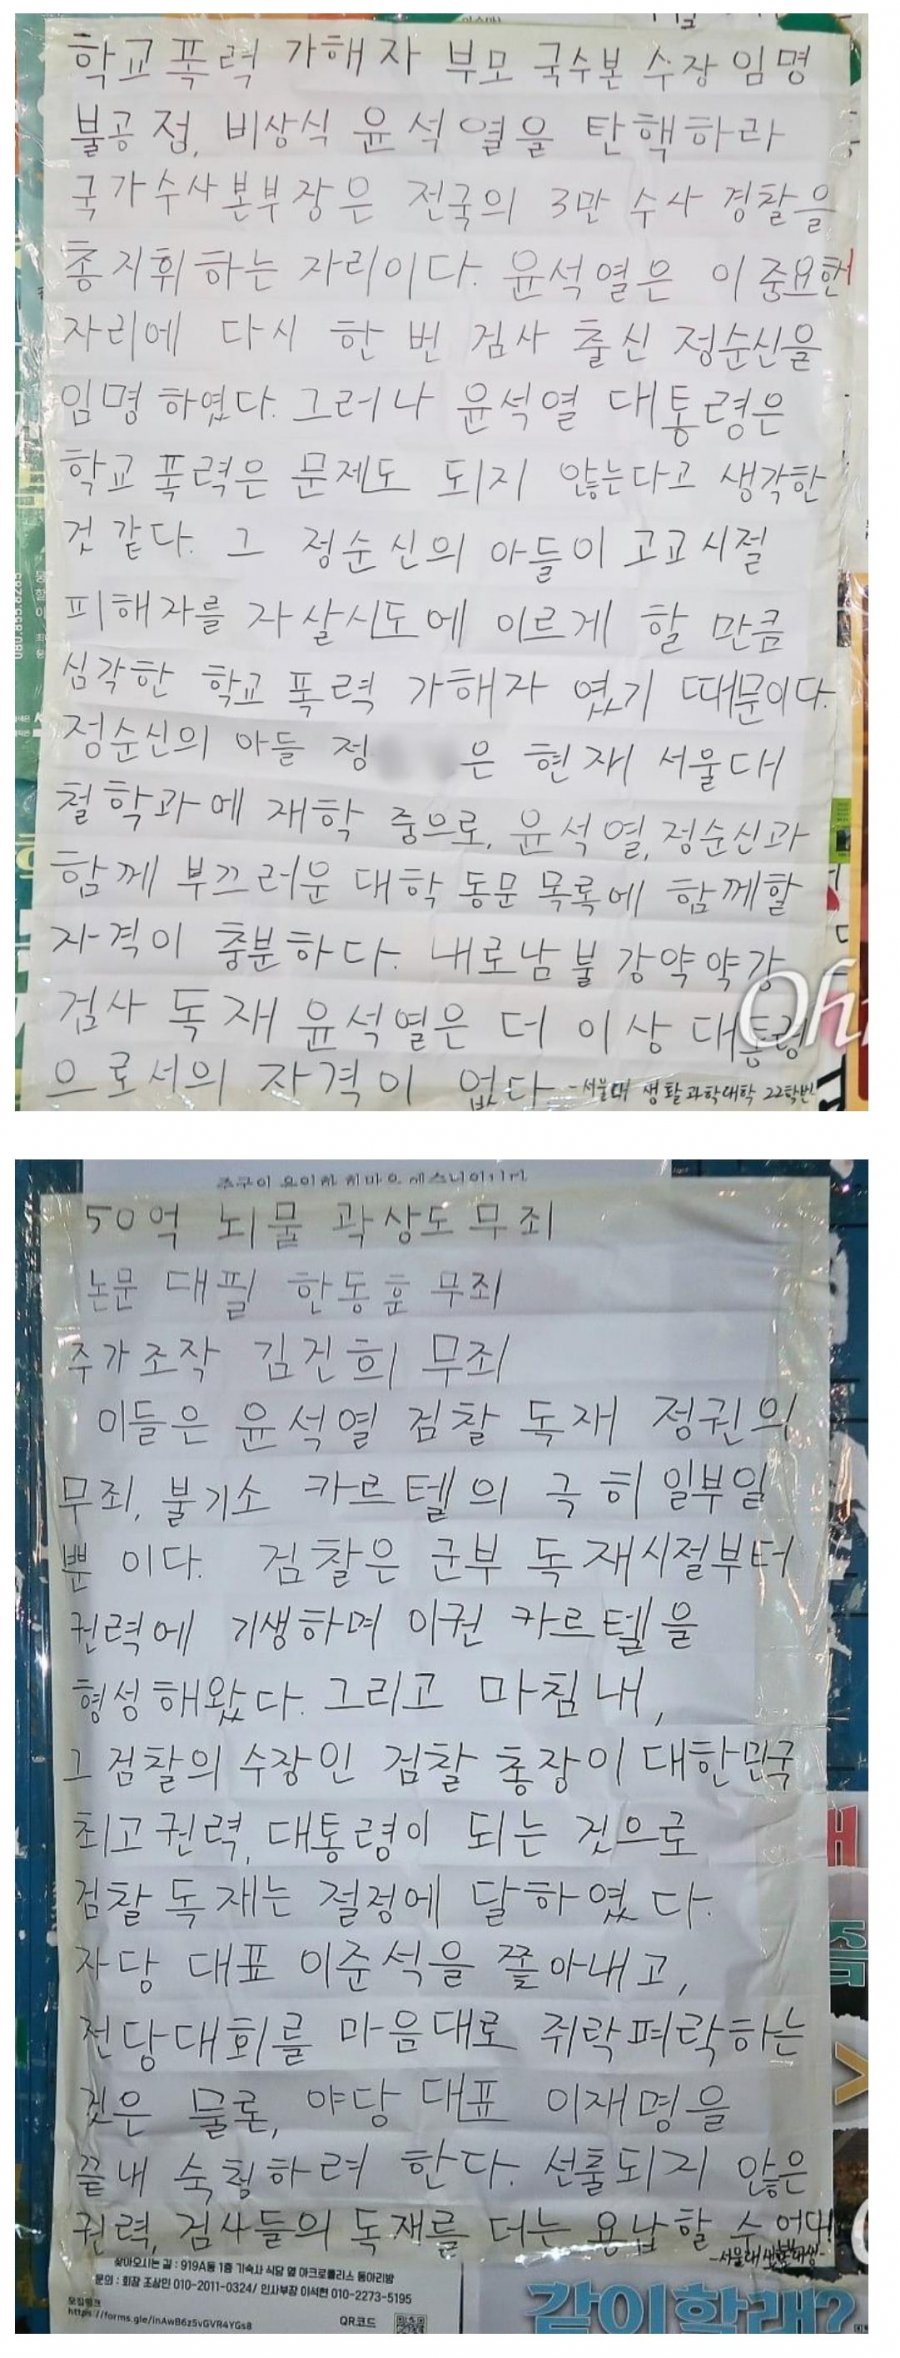 학교폭력 가해자 부모 국수본 수장 임명
불공정, 비상식 윤석열을 탄핵하라
국가수사본부장은 전국의 3만 수사 경찰을
총지휘하는 자리이다. 윤석열은 이 중요한
자리에 다시 한 번 검사 출신 정순신을
임명하였다. 그러나 윤석열 대통령은
학교 폭력은 문제도 되지 않는다고 생각한
것 같다. 그 정순신의 아들이 고교시절
피해자를 자살시도에 이르게 할 만큼
심각한 학교 폭력 가해자 였기 때문이다.
정순신의 아들 정 은 현재 서울대
철학과에 재학 중으로, 윤석열, 정순신과
함께 부끄러운 대학 동문 목록에 함께할
자격이 충분하다. 내로남불 강약약강
검사 독재 윤석열은 더 이상 대통령
으로서의 자격이 없다. -서울대 생활과학대학 22학번-
Oh
080.855.8285
50억 뇌물 곽상도 무죄
논문 대필 한동훈 무죄
주가조작 김건희 무죄
이들은 윤석열 검찰 독재 정권의
무죄, 불기소 카르텔의 극히 일부일
뿐이다. 검찰은 군부 독재시절부터
권력에 기생하며 이권 카르텔을
형성해왔다. 그리고 마침내,
그 검찰의 수장인 검찰 총장이 대한민국
최고권력, 대통령이 되는 것으로
검찰 독재는 절정에 달하였다.
자당 대표 이준석을 쫓아내고,
전당대회를 마음대로 쥐락펴락하는
것은 물론, 야당 대표 이재명을
끝내 숙청하려 한다. 선출되지 않은
권력, 검사들의 독재를 더는 용납할 수 없다!
찾아오시는 길 : 919A동 1층 기숙사 식당 옆 아크로폴리스 동아리방
문의 : 회장 조상인 010-2011-0324/ 인사부장 이석현 010-2273-5195
모집링크
https://forms.gle/inAwB6z5vGVR4YGs8
QR코드
같이할래?